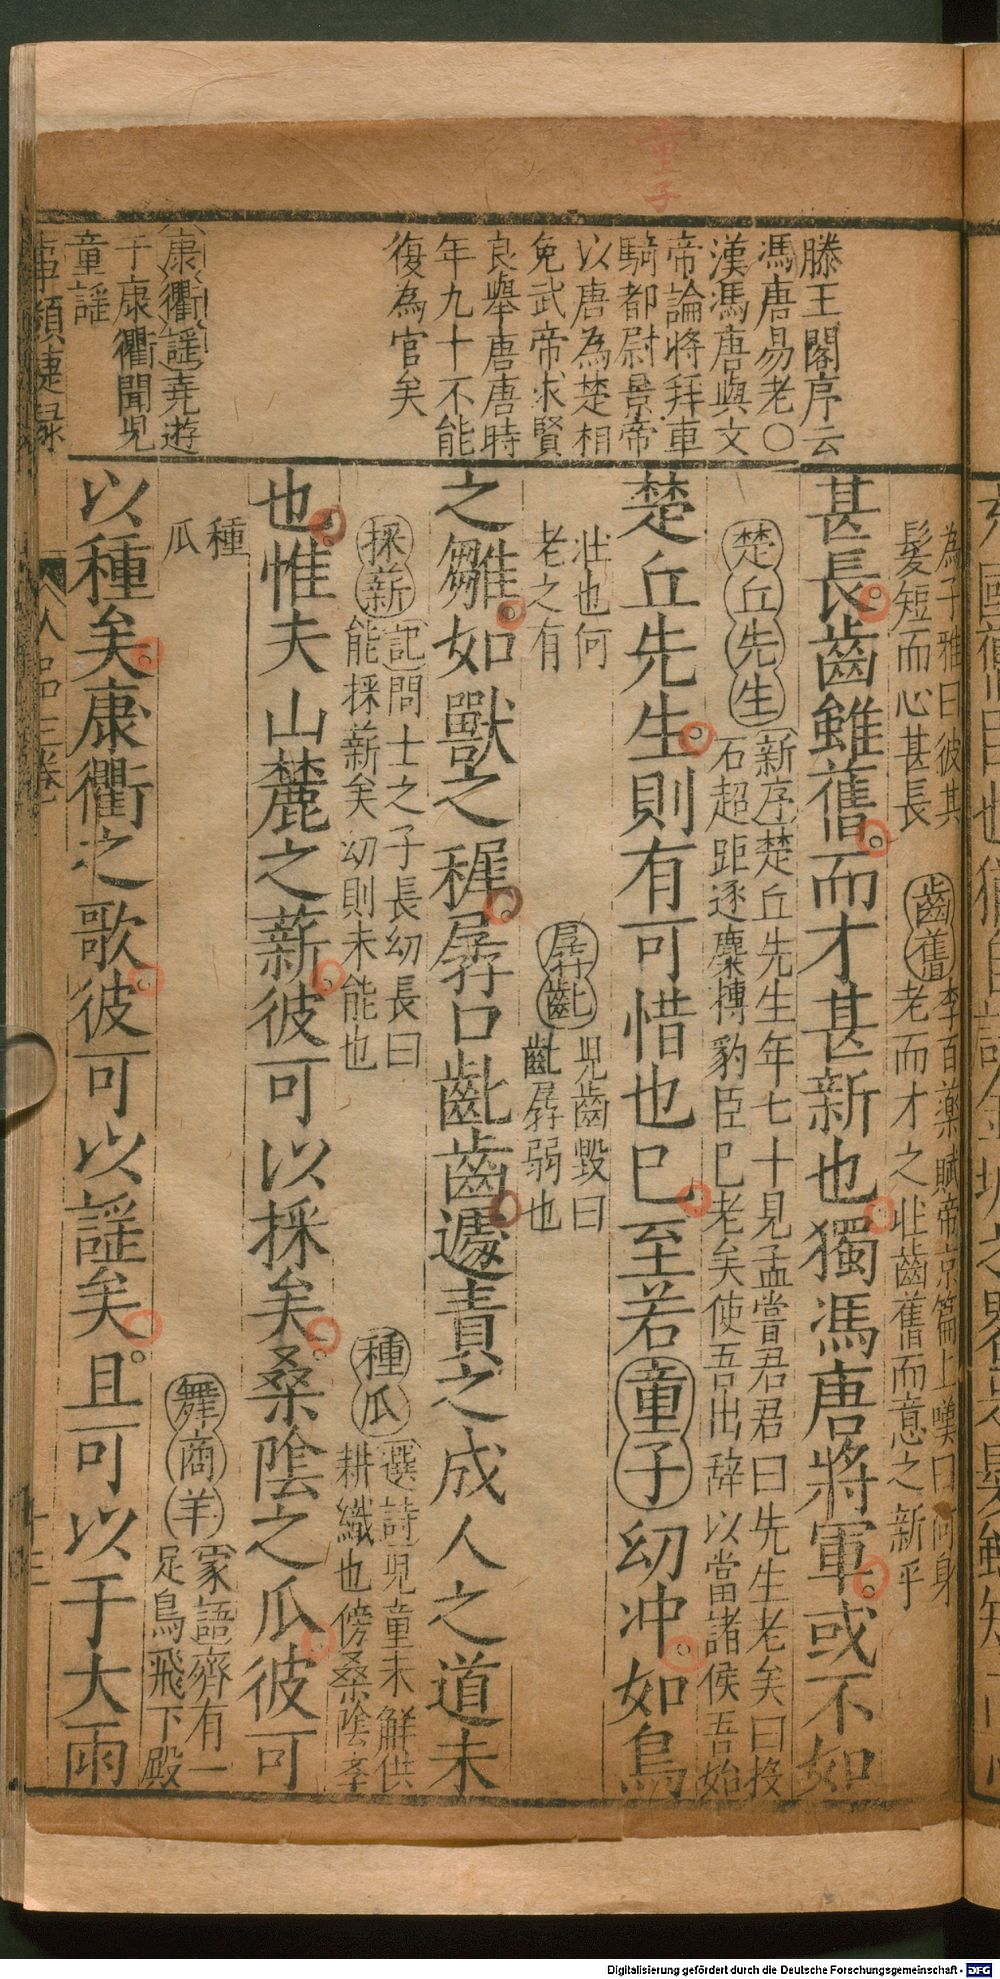 童子
滕王閣序云
馮唐易老○
漢馮唐與文
帝論將拜車
騎都尉景帝
以唐為楚相
免武帝求賢
良舉唐唐時
年九十不能
復為官矣
康衢謠堯遊
于康衢聞兒
童謠
為子雅曰彼其
髮短而心甚長
齒舊李百藥賦帝京篇上嘆曰何身
老而才之壯齒舊而意之新乎
甚長齒雖舊而才甚新也獨馮唐將軍或不如
楚丘先生新序楚丘先生年七十見孟嘗君君曰先生老矣曰投
石超距逐麋搏豹臣已老矣使吾出辭以當諸侯吾始
楚丘先生則有可惜也巳至若童子幼冲如鳥
壯也何
老之有
孱齔兒齒毀曰
齔孱弱也
之雛如獸之穉孱口齔齒遽責之成人之道未
採薪記問士之子長幼長曰
能採薪矣幼則未能也
種瓜選詩兒童未解供
耕織也傍桑陰孝
也惟夫山麓之薪彼可以採矣桑陰之瓜彼可
種
瓜
舞商羊家語齊有一
足鳥飛下殿
以種矣康衢之歌彼可以謡矣且可以于大雨
事類捷録
人品三卷
十三
Digitalisierung gefördert durch die Deutsche Forschungsgemeinschaft - DFG